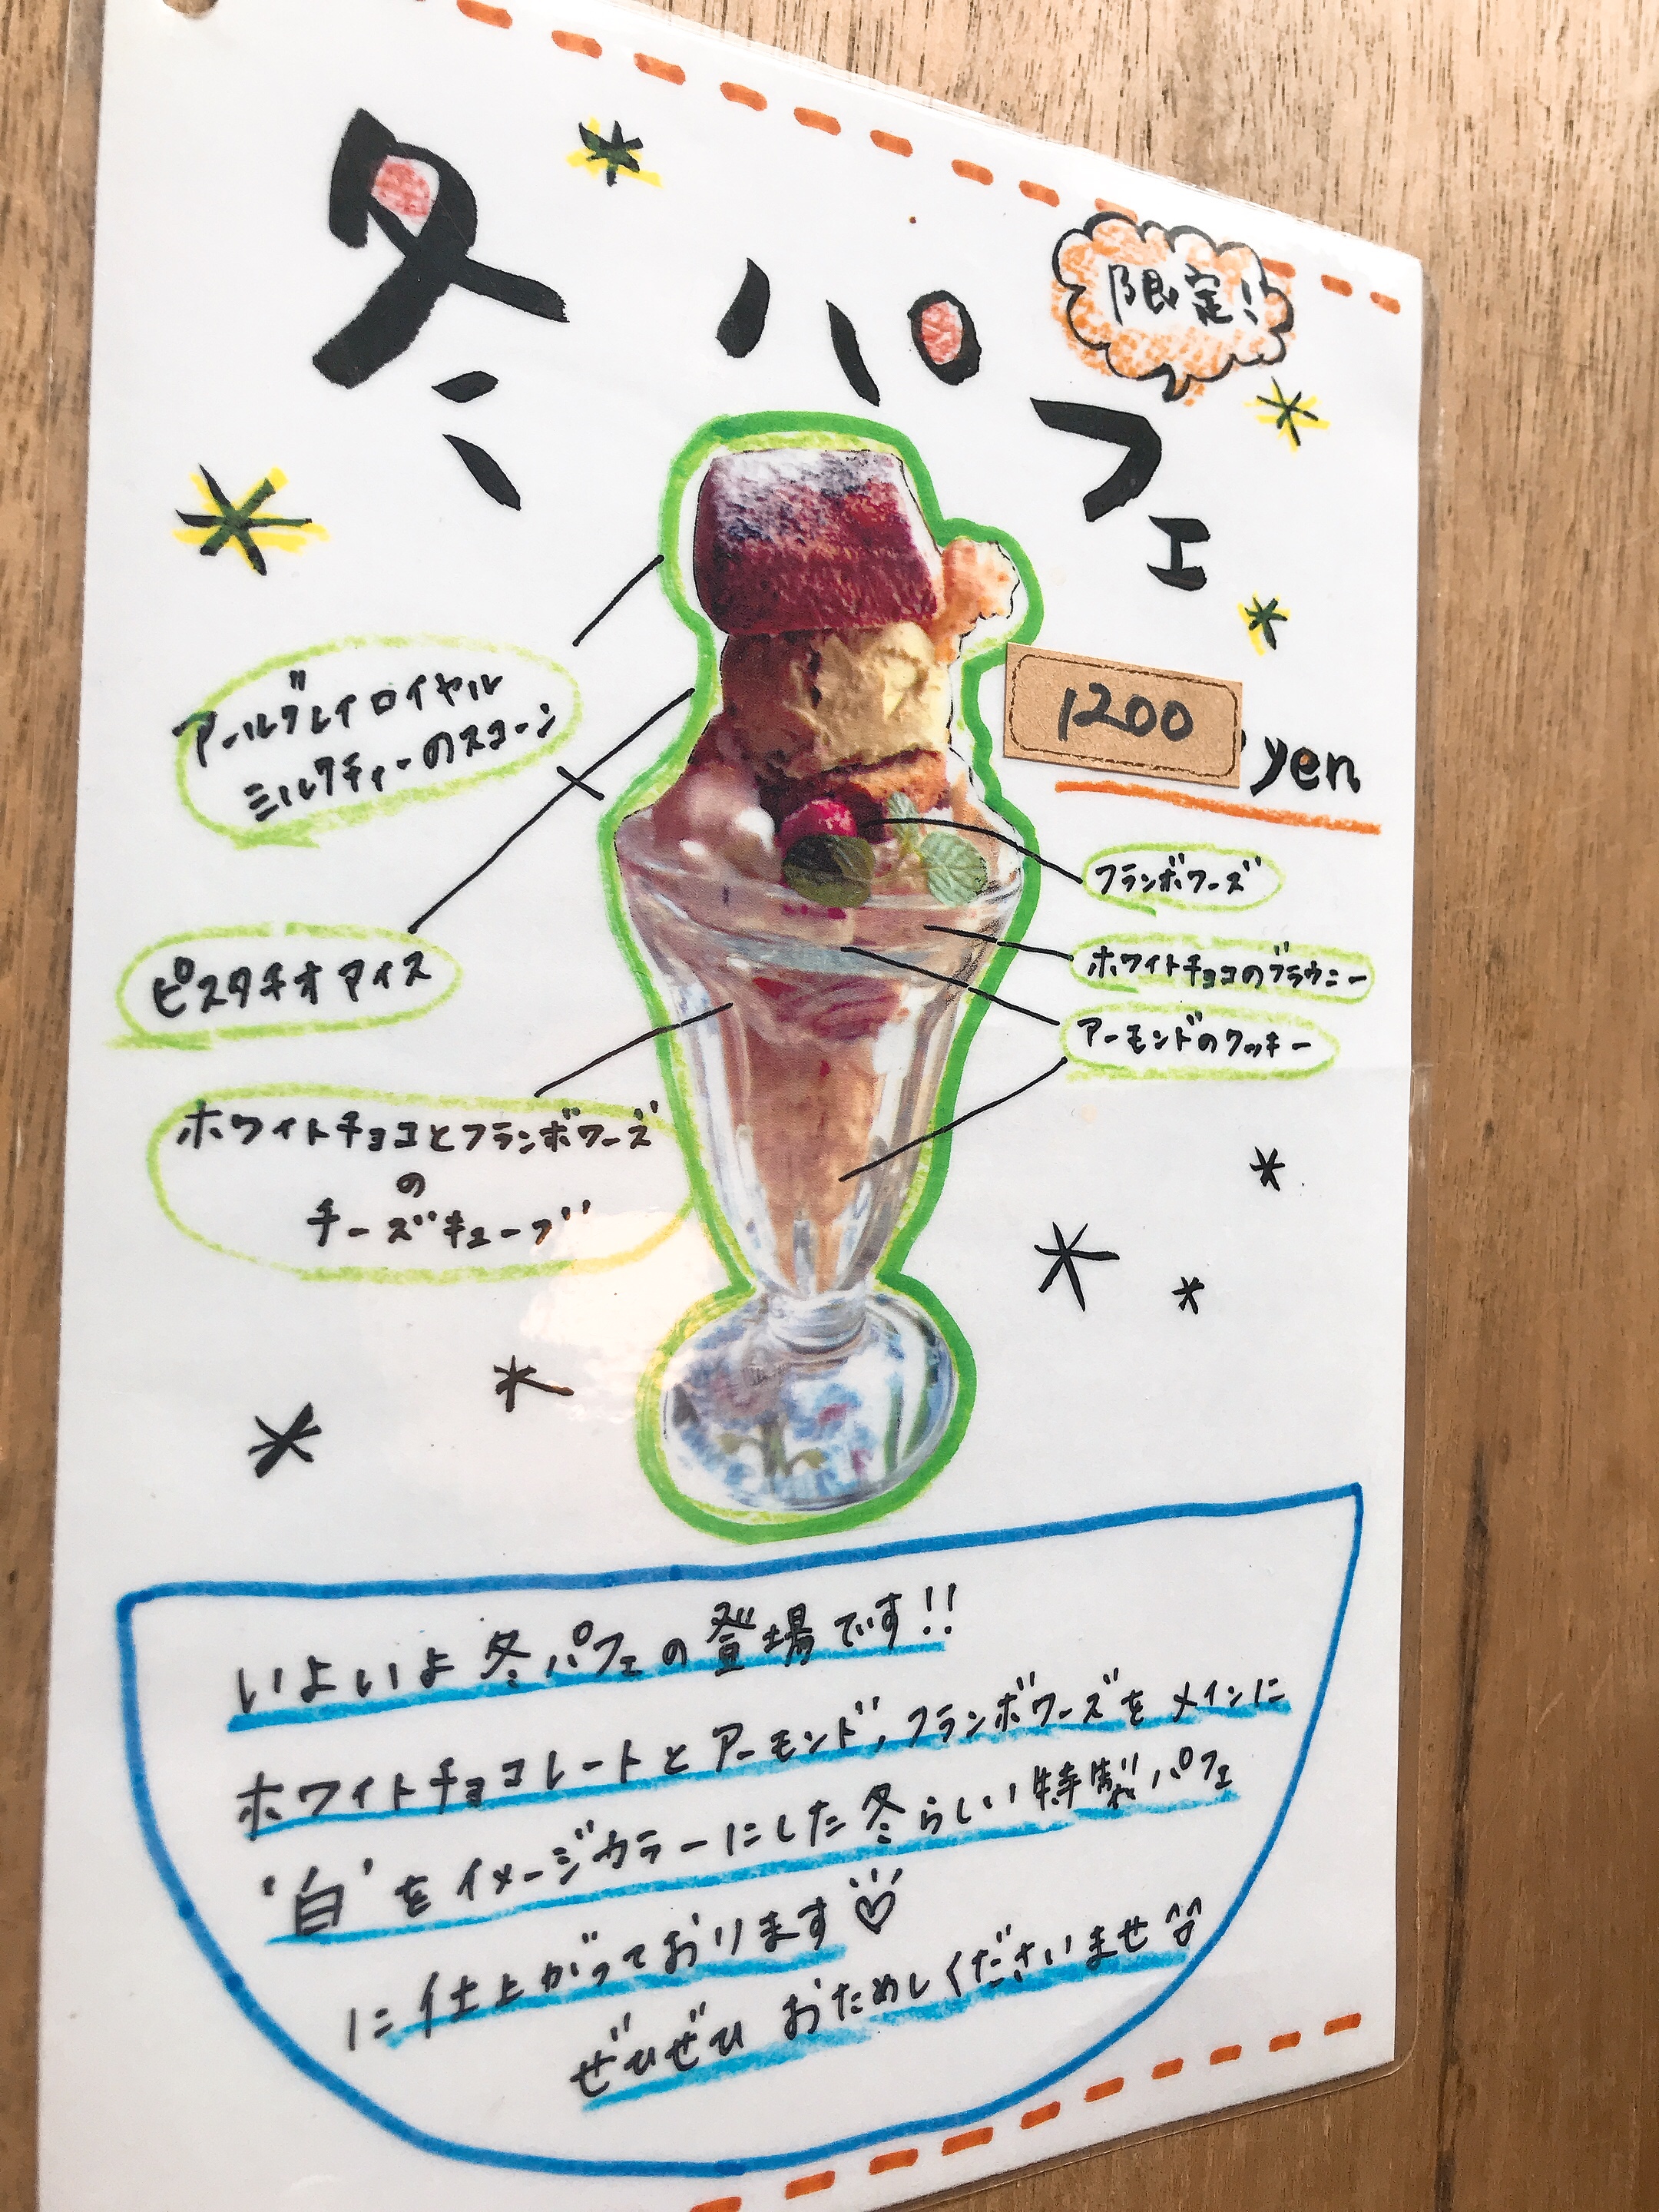 冬パフェ
限定!
1200
yen
アールグレイロイヤル
ミルクティーのスコーン
ピスタチオアイス
ホワイトチョコとフランボワーズ
の
チーズキューブ
フランボワーズ
ホワイトチョコのブラウニー
アーモンドのクッキー
いよいよ冬パフェの登場です!!
ホワイトチョコレートとアーモンド,フランボワーズをメインに
'白'をイメージカラーにした冬らしい特製パフェ
に仕上がっております♡
ぜひぜひおためしくださいませ